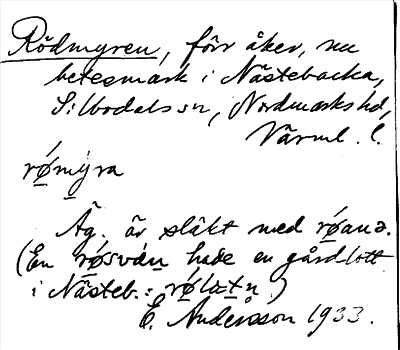 Rödmyren, förr åker, nu
betesmark i Nästebacka,
Silbodals sn, Nordmarks hd,
Värml. l.
rǿmýra
Äg. är släkt med rǿana.
(En rǿsván hade en gårdlott
i Nästeb.: rǿlɷtn.)
E. Andersson 1933.